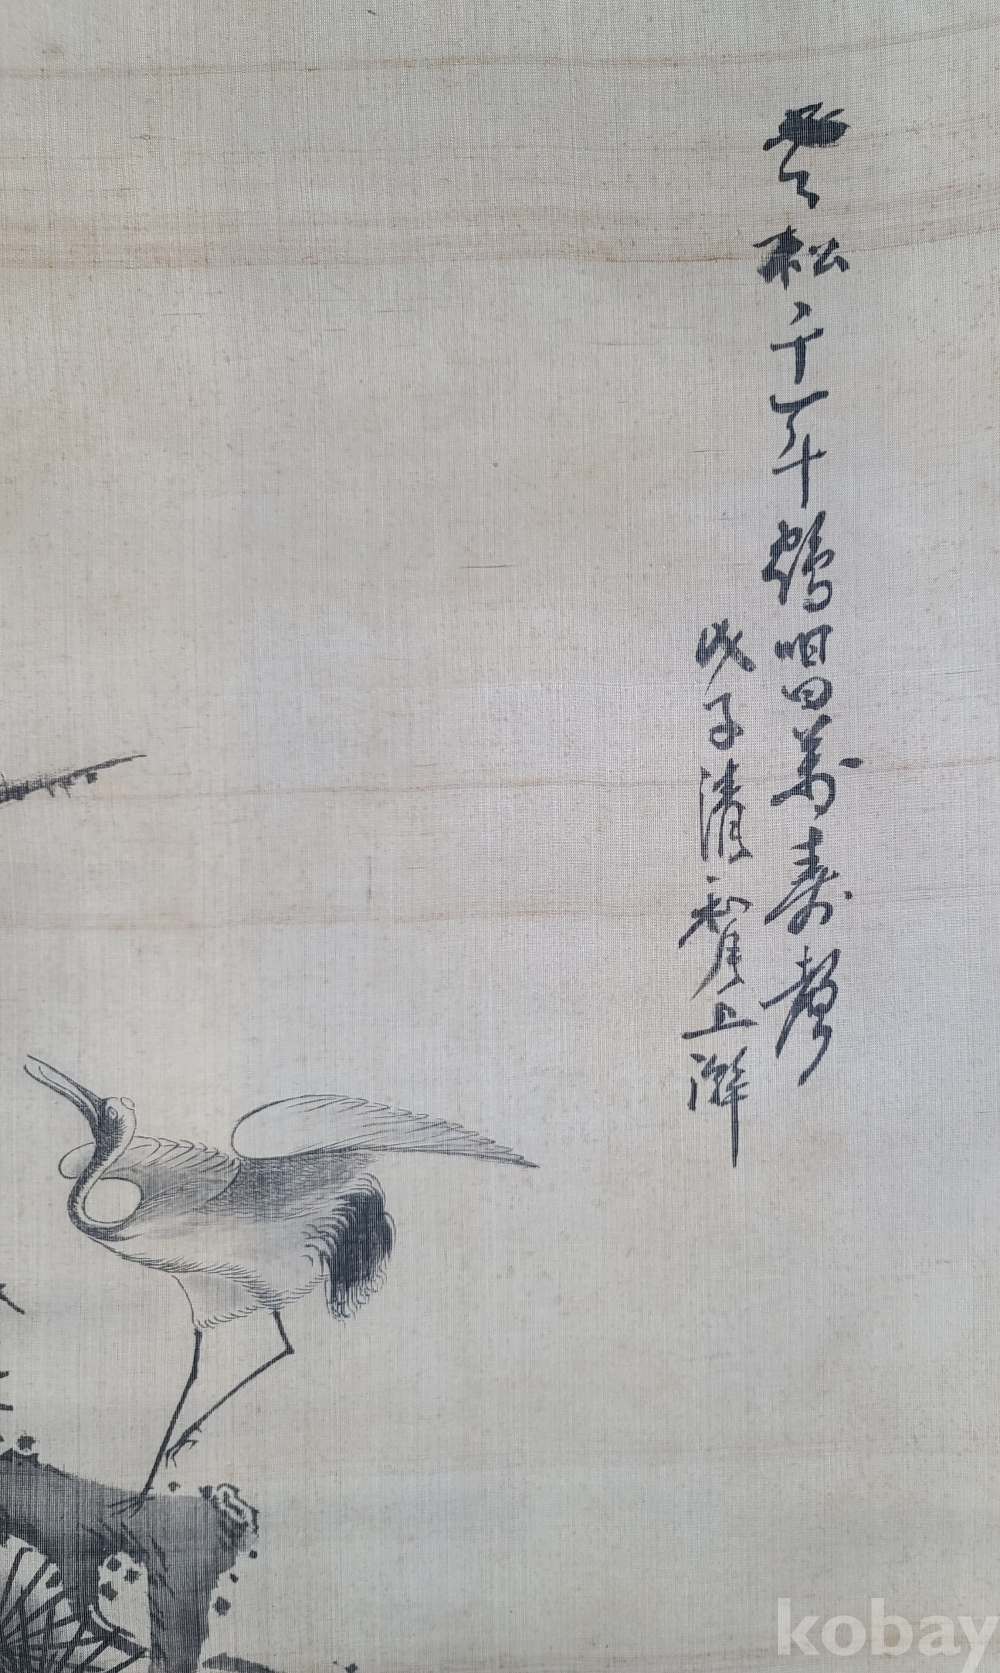 老松千年鶴唱萬壽聲
戊子清和月上澣
kobay